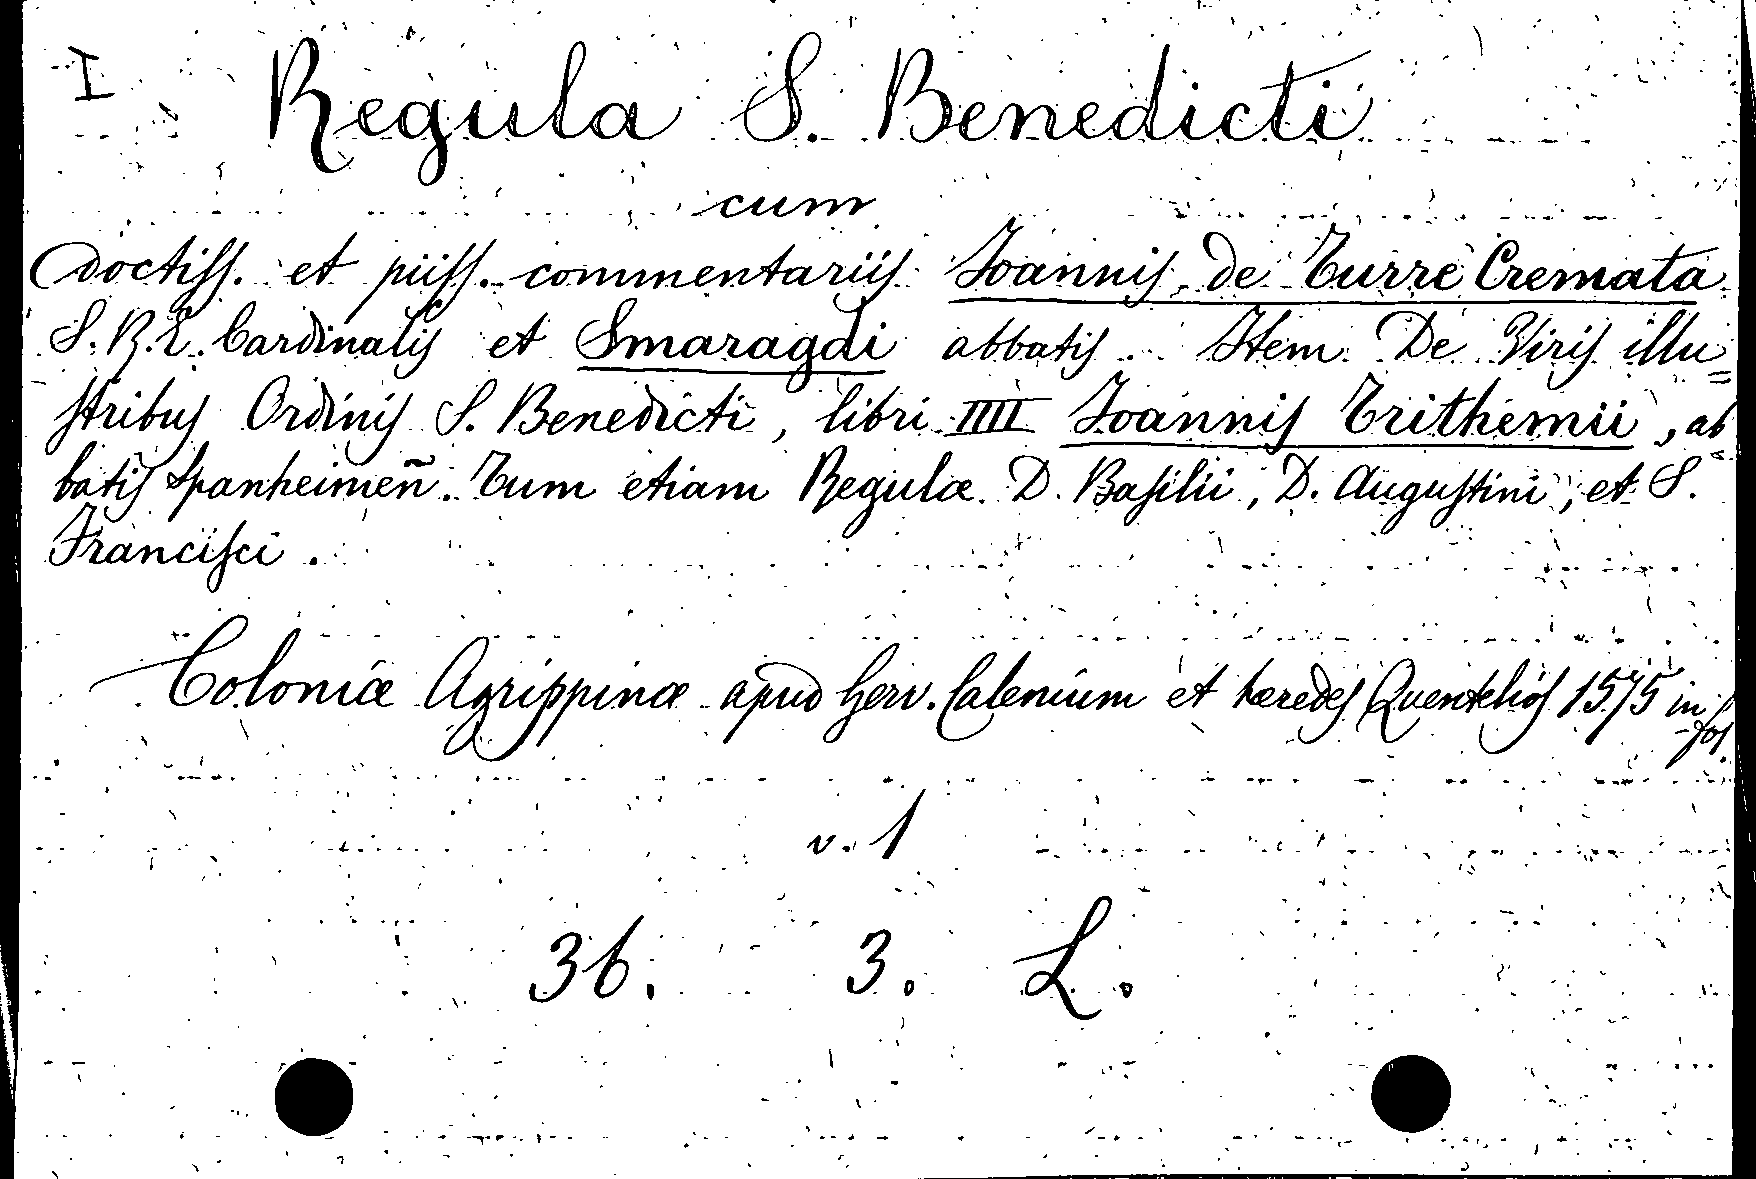 I
Regula S. Benedicti
cum
doctiss. et piiss. commentariis Joannis de Turre Cremata
S. R. E. Cardinalis et Smaragdi abbatis. Item De Viris illu=
stribus Ordinis S. Benedicti, libri IIII Joannis Trithemii, ab
batis Spanheimen̄. Tum etiam Regulæ D. Basilii, D. Augustini, et S.
Francisci.
Coloniæ Agrippinæ apud Gerv. Calenium et hæredes Quentelios 1575 in
fol.
v. 1
36. 3. L.